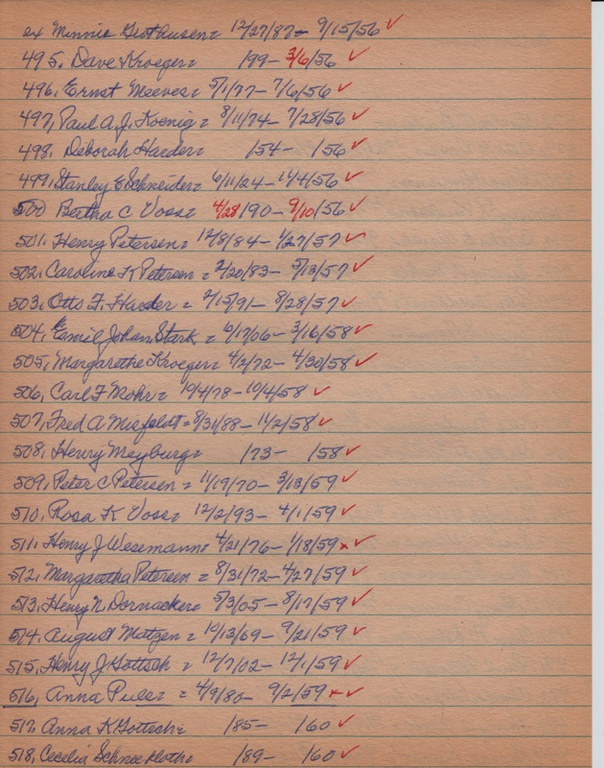 ex Minnie Geothusen = 12/27/87 - 9/15/56 ✓
495. Dave Kroeger = /99 - 3/6/56 ✓
496. Ernst Meeves = 5/1/77 - 7/6/56 ✓
497, Paul A. J. Koenig = 8/11/74 - 7/28/56 ✓
498. Deborah Harder = /54 - /56 ✓
499, Stanley E Schneider = 6/11/24 - 11/4/56 ✓
500 Bertha C Voss = 4/28/90 - 9/10/56 ✓
501. Henry Petersen = 12/8/84 - 1/27/57 ✓
502. Caroline K Petersen = 2/20/83 - 5/13/57 ✓
503. Otto F. Harder = 2/15/91 - 8/28/57 ✓
504. Emil Johan Stark = 6/17/06 - 3/16/58 ✓
505, Margarethe Kroeger = 4/2/72 - 4/30/58 ✓
506, Carl F Mohr = 10/4/78 - 10/4/58 ✓
507, Fred A Misfeldt = 8/31/88 - 11/2/58 ✓
508, Henry Meyburg = /73 - /58 ✓
509, Peter C Petersen = 11/19/70 - 3/13/59 ✓
510, Rosa K Voss = 12/2/93 - 4/1/59 ✓
511. Henry J Wesemann = 4/21/76 - 1/18/59 x ✓
512. Margaretha Petersen = 8/31/72 - 4/27/59 ✓
513. Henry N. Dornacker = 5/3/05 - 8/17/59 ✓
514. August Matzen = 10/13/69 - 9/21/59 ✓
515. Henry J Gottsch = 12/7/02 - 12/1/59 ✓
516, Anna Puls = 4/9/80 - 9/2/59 x ✓
517. Anna K Gottsch = /85 - /60 ✓
518, Cecelia Schneekloth = /89 - /60 ✓